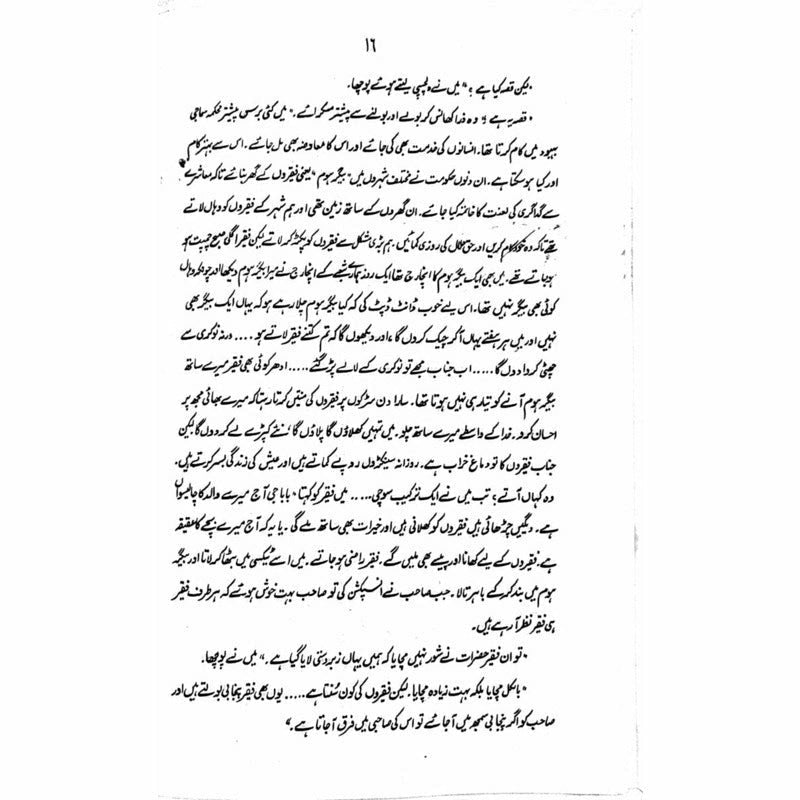 ۱۶
"لیکن قصہ کیا ہے؟" میں نے دلچسپی لیتے ہوئے پوچھا۔
"قصہ یہ ہے" وہ ذرا کھانس کر بولے اور بولنے سے پیشتر مسکرائے۔ "میں کئی برس پیشتر محکمہ سماجی
بہبود میں کام کرتا تھا۔ انسانوں کی خدمت بھی کی جائے اور اس کا معاوضہ بھی مل جائے۔ اس سے بہتر کام
اور کیا ہو سکتا ہے۔ ان دنوں حکومت نے مختلف شہروں میں "بیگر ہوم" یعنی فقیروں کے گھر بنائے تاکہ معاشرے
سے گداگری کی لعنت کا خاتمہ کیا جائے۔ ان گھروں کے ساتھ زمین تھی اور ہم شہر کے فقیروں کو وہاں لاتے
تھے تاکہ وہ کام کریں اور حق حلال کی روزی کمائیں۔ ہم بڑی مشکل سے فقیروں کو پکڑ کر لاتے لیکن فقیر اگلی صبح چمپت ہو
ہو جاتے تھے۔ میں بھی ایک بیگر ہوم کا انچارج تھا ایک روز ہمارے شعبے کے انچارج نے میرا بیگر ہوم دیکھا اور چونکہ وہاں
کوئی بھی بیگر نہیں تھا۔ اس لیے خوب ڈانٹ ڈپٹ کی کہ کیا بیگر ہوم چلا رہے ہو کہ یہاں ایک بیگر بھی
نہیں اور میں ہر ہفتے یہاں آ کر چیک کروں گا، اور دیکھوں گا کہ تم کتنے فقیر لاتے ہو..... ورنہ نوکری سے
چھٹی کروا دوں گا..... اب جناب مجھے تو نوکری کے لالے پڑ گئے..... ادھر کوئی بھی فقیر میرے ساتھ
بیگر ہوم آنے کو تیار ہی نہیں ہوتا تھا۔ سارا دن سڑکوں پر فقیروں کی منتیں کرتا رہتا کہ میرے بھائی مجھ پر
احسان کرو۔ خدا کے واسطے میرے ساتھ چلو۔ میں تمہیں کھلاؤں گا پلاؤں گا، نئے کپڑے لے کر دوں گا لیکن
جناب فقیروں کا تو دماغ خراب ہے۔ روزانہ سینکڑوں روپے کماتے ہیں اور عیش کی زندگی بسر کرتے ہیں۔
وہ کہاں آتے؛ تب میں نے ایک ترکیب سوچی..... میں فقیر کو کہتا "بابا جی آج میرے والد کا چالیسواں
ہے۔ دیگیں چڑھائی ہیں فقیروں کو کھلانی ہیں اور خیرات بھی ساتھ ملے گی۔ یا یہ کہ آج میرے بچے کا عقیقہ
ہے۔ فقیروں کے لیے کھانا اور پیسے بھی ملیں گے۔ فقیر راضی ہو جاتے۔ میں اسے ٹیکسی میں بٹھا کر لاتا اور بیگر
ہوم میں بند کر کے باہر تالا۔ جب صاحب نے انسپکشن کی تو صاحب بہت خوش ہوئے کہ ہر طرف فقیر
ہی فقیر نظر آ رہے ہیں۔
"تو ان فقیر حضرات نے شور نہیں مچایا کہ ہمیں یہاں زبردستی لایا گیا ہے۔" میں نے پوچھا۔
"بالکل مچایا بلکہ بہت زیادہ مچایا۔ لیکن فقیروں کی کون سُنتا ہے..... یوں بھی فقیر پنجابی بولتے ہیں اور
صاحب کو اگر پنجابی سمجھ میں آ جائے تو اس کی صاحبی میں فرق آ جاتا ہے۔"